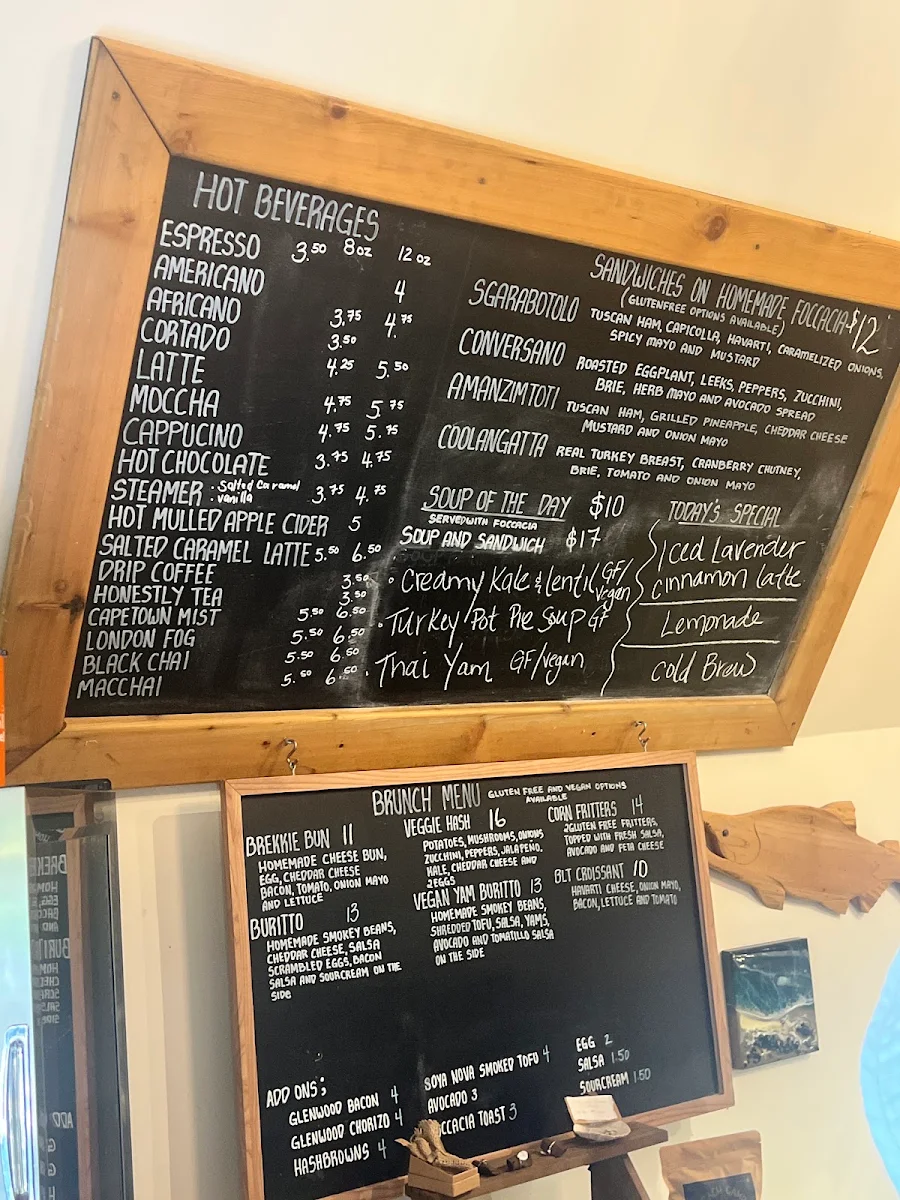 HOT BEVERAGES
8oz 12oz
ESPRESSO 3.50
AMERICANO 4
AFRICANO 3.75 4.75
CORTADO 3.50
LATTE 4.25 5.50
MOCCHA 4.75 5.75
CAPPUCINO 4.75 5.75
HOT CHOCOLATE 3.75 4.75
STEAMER • Salted Caramel vanilla 3.75 4.75
HOT MULLED APPLE CIDER 5
SALTED CARAMEL LATTE 5.50 6.50
DRIP COFFEE 3.50
HONESTLY TEA 3.50
CAPETOWN MIST 5.50 6.50
LONDON FOG 5.50 6.50
BLACK CHAI 5.50 6.50
MACCHAI
SANDWICHES ON HOMEMADE FOCCACIA $12
(GLUTENFREE OPTIONS AVAILABLE)
SGARABOTOLO TUSCAN HAM, CAPICOLLA, HAVARTI, CARAMELIZED ONIONS,
SPICY MAYO AND MUSTARD
CONVERSANO ROASTED EGGPLANT, LEEKS, PEPPERS, ZUCCHINI,
BRIE, HERB MAYO AND AVOCADO SPREAD
AMANZIMTOTI TUSCAN HAM, GRILLED PINEAPPLE, CHEDDAR CHEESE
MUSTARD AND ONION MAYO
COOLANGATTA REAL TURKEY BREAST, CRANBERRY CHUTNEY,
BRIE, TOMATO AND ONION MAYO
SOUP OF THE DAY $10
SERVED WITH FOCCACIA
SOUP AND SANDWICH $17
• Creamy Kale & lentil GF/
vegan
• Turkey Pot Pie Soup GF
• Thai Yam GF/vegan
TODAY'S SPECIAL
Iced Lavender
cinnamon latte
Lemonade
Cold Brew
BRUNCH MENU GLUTEN FREE AND VEGAN OPTIONS
AVAILABLE
BREKKIE BUN 11
HOMEMADE CHEESE BUN,
EGG, CHEDDAR CHEESE
BACON, TOMATO, ONION MAYO
AND LETTUCE
BURITTO 13
HOMEMADE SMOKEY BEANS,
CHEDDAR CHEESE, SALSA
SCRAMBLED EGGS, BACON
SALSA AND SOURCREAM ON THE
SIDE
VEGGIE HASH 16
POTATOES, MUSHROOMS, ONIONS
ZUCCHINI, PEPPERS, JALAPENO,
KALE, CHEDDAR CHEESE AND
2EGGS
VEGAN YAM BURITTO 13
HOMEMADE SMOKEY BEANS,
SHREDDED TOFU, SALSA, YAMS,
AVOCADO AND TOMATILLO SALSA
ON THE SIDE
CORN FRITTERS 14
2GLUTEN FREE FRITTERS,
TOPPED WITH FRESH SALSA,
AVOCADO AND FETA CHEESE
BLT CROISSANT 10
HAVARTI CHEESE, ONION MAYO,
BACON, LETTUCE AND TOMATO
ADD ONS:
GLENWOOD BACON 4
GLENWOOD CHORIZO 4
HASHBROWNS 4
SOYA NOVA SMOKED TOFU 4
AVOCADO 3
CCACCIA TOAST 3
EGG 2
SALSA 1.50
SOURCREAM 1.50